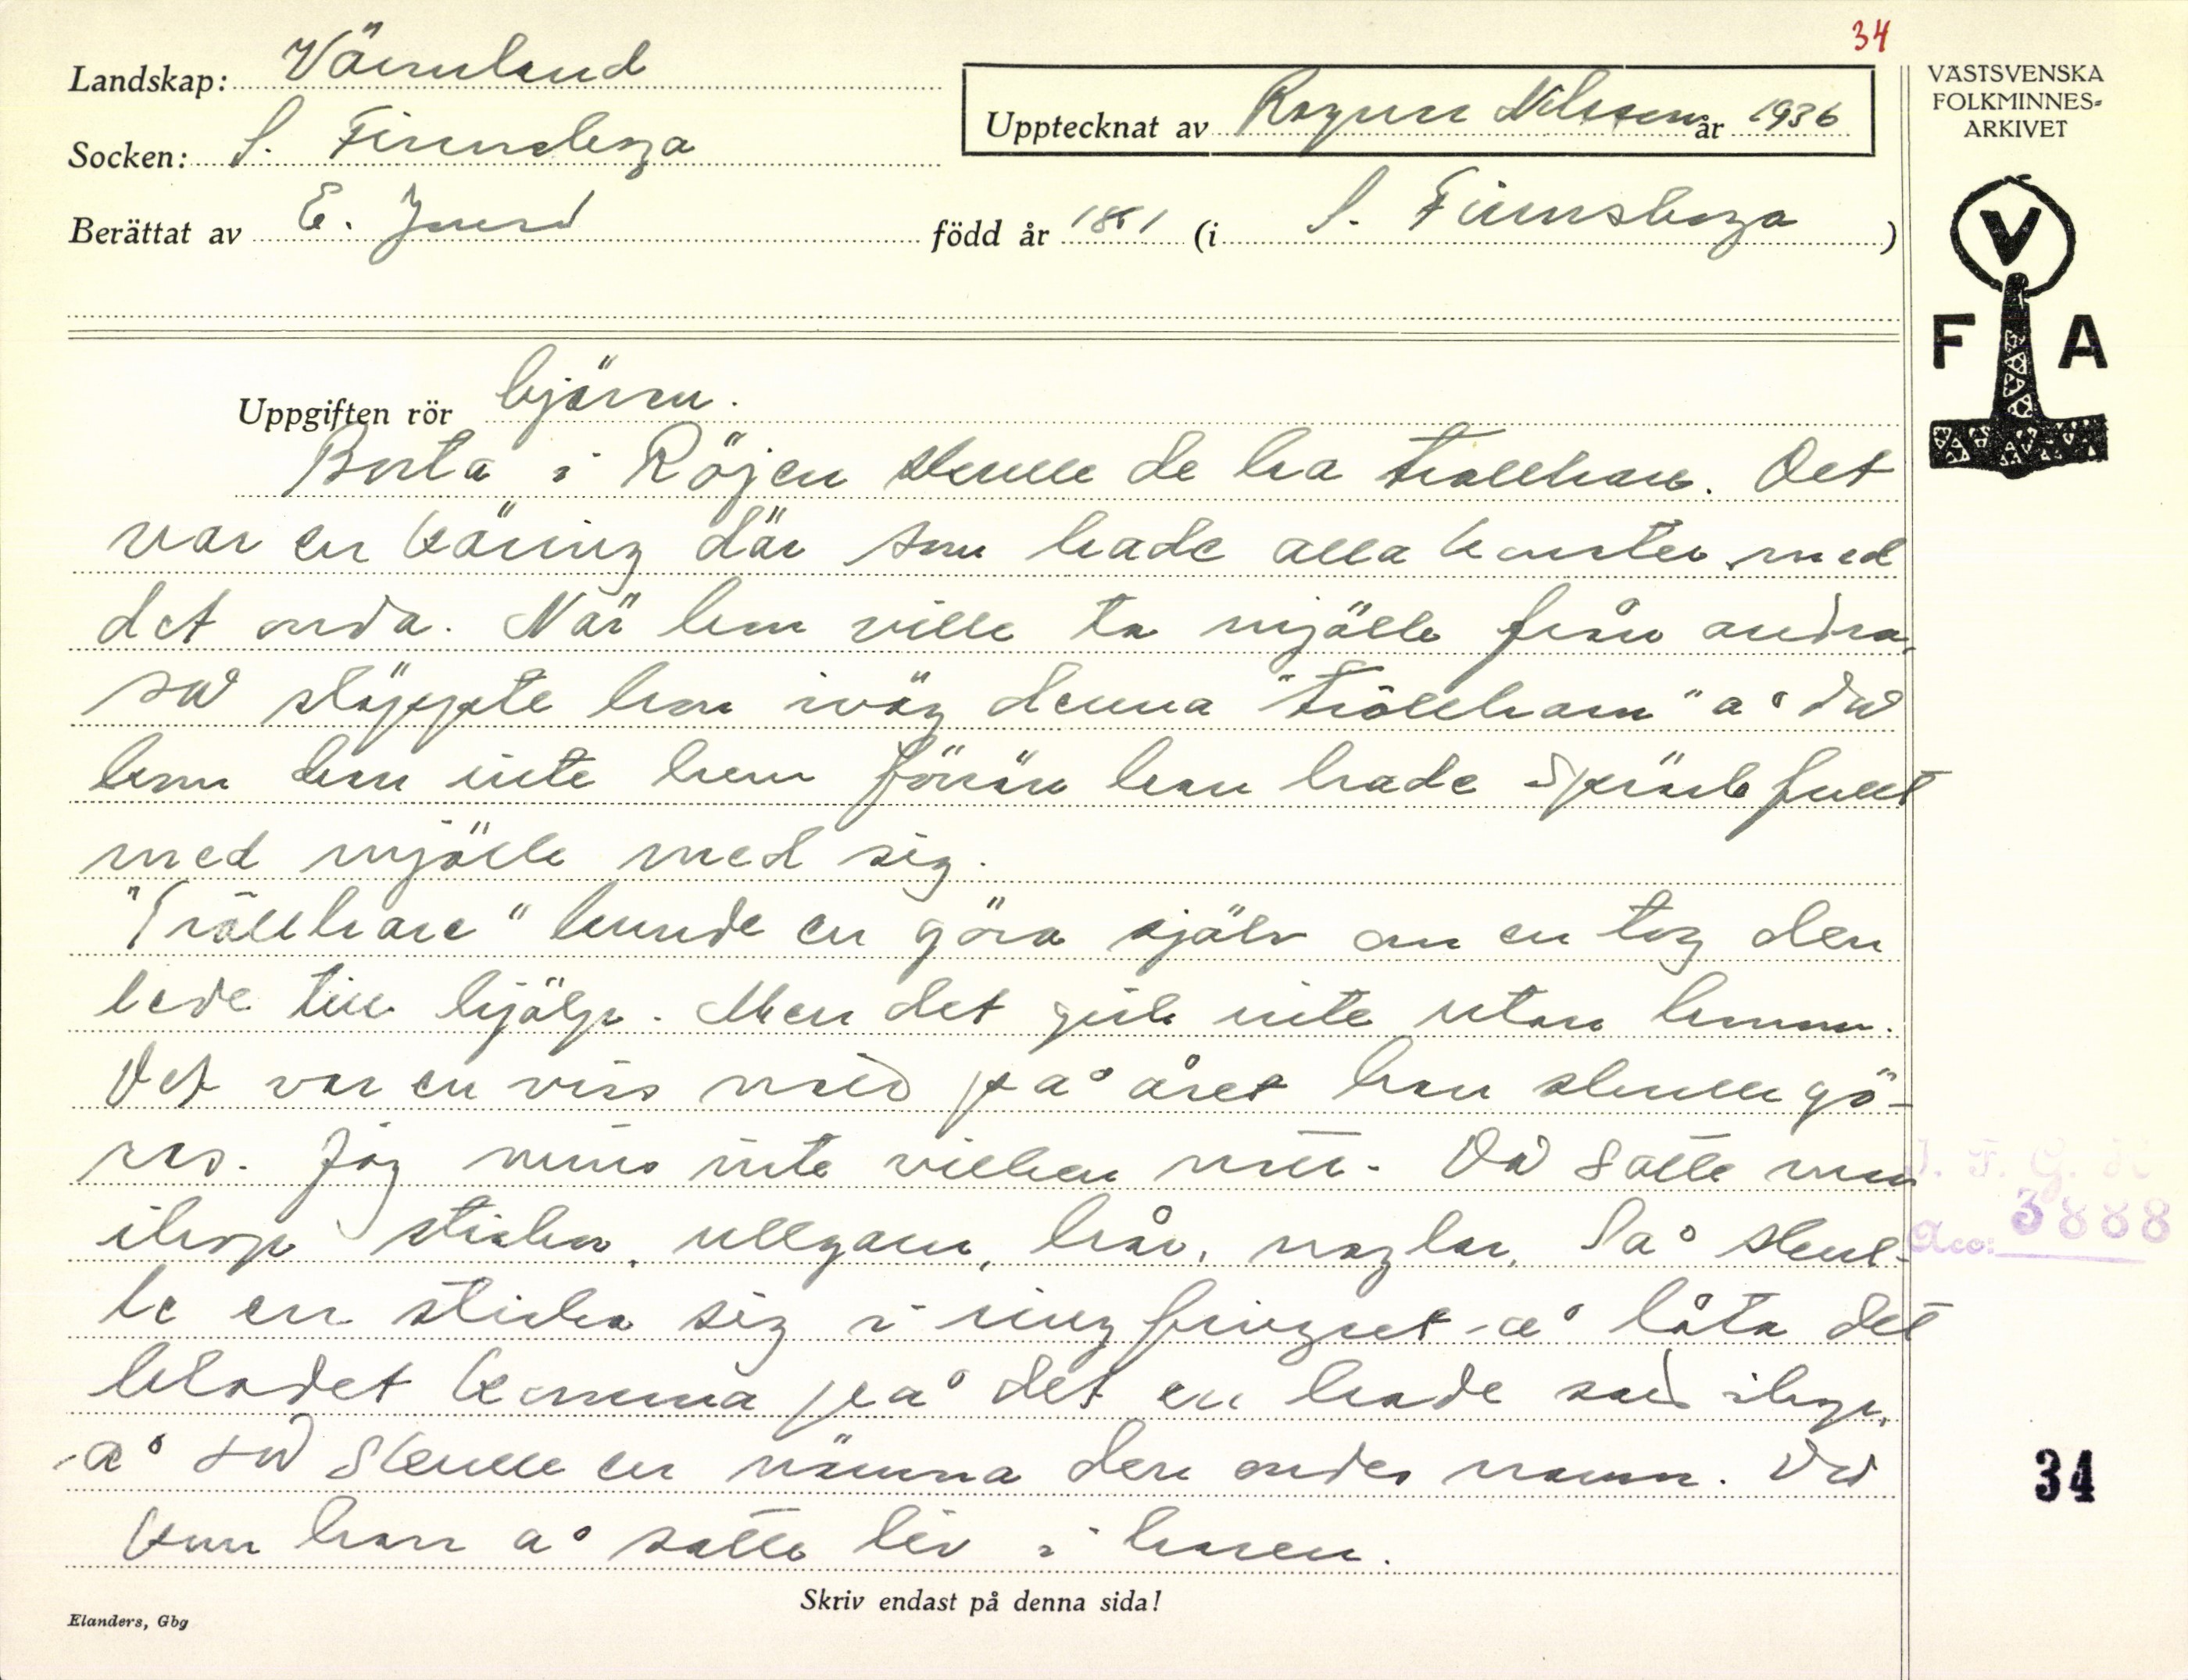 34
Landskap: Värmland
Socken: S. Finnskoga
Upptecknat av Ragnar Nilsson år 1936
Berättat av E. Jnerd född år 1851 (i S. Finnskoga)
VÄSTSVENSKA
FOLKMINNES-
ARKIVET
V
F A
Uppgiften rör bjären.
Borta i Röjen skulle de ha trollhare. Det
var en käring där som hade alla konster med
det onda. När hon ville ta mjölk från andra,
så släppte hon iväg denna "trollharn" å då
kom den inte hem förrän han hade spränfullt
med mjölk med sig.
"Trollhare" kunde en göra själv om en tog den
lede till hjälp. Men det gick inte utan honom.
Det var en viss natt på året han skulle gö-
ras. Jag minns inte vilken natt. Då satte man
ihop stickor, ullgarn, hår, naglar. Så skul-
le en sticka sig i ringfingret å låta det
blodet komma på det en hade satt ihop,
å så skulle en nämna den ondes namn. Då
kom han å satte liv i haren.
J. F. G. H
Acc: 3888
34
Skriv endast på denna sida!
Elanders, Gbg